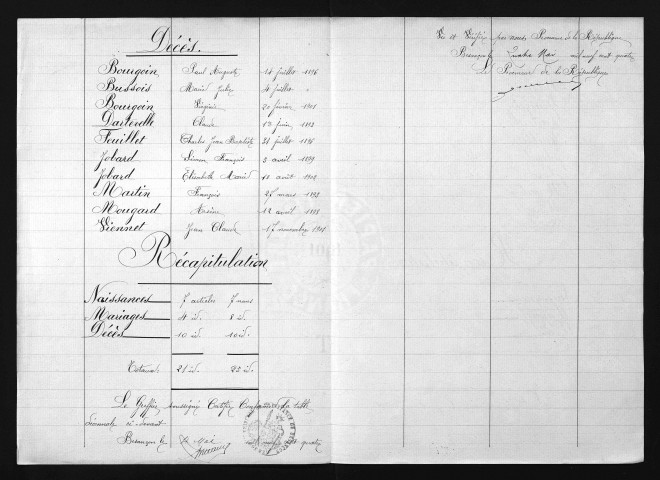 Décès.
Bourgoin Paul Auguste 14 juillet 1896
Bussois Marie Julie 4 juillet "
Bourgoin Virginie 20 février 1901
Darterelle Claude 12 juin 1893
Feuillet Charles Jean Baptiste 31 juillet 1896
Jobard Simon François 3 avril 1899
Jobard Elisabeth Marie 10 août 1901
Martin François 27 mars 1898
Mougard Arsène 12 avril 1898
Viennet Jean Claude 17 novembre 1901
Récapitulation
Naissances 7 articles 7 noms
Mariages 4 id. 8 id.
Décès 10 id. 10 id.
Totaux 21 id. 25 id.
Le Greffier soussigné Certifie la table
décennale ci-devant
Besançon le Mai quatre
Vu et Vérifié par nous, Procureur de la République
Besançon le quatre Mai mil neuf cent quatre
Le Procureur de la République